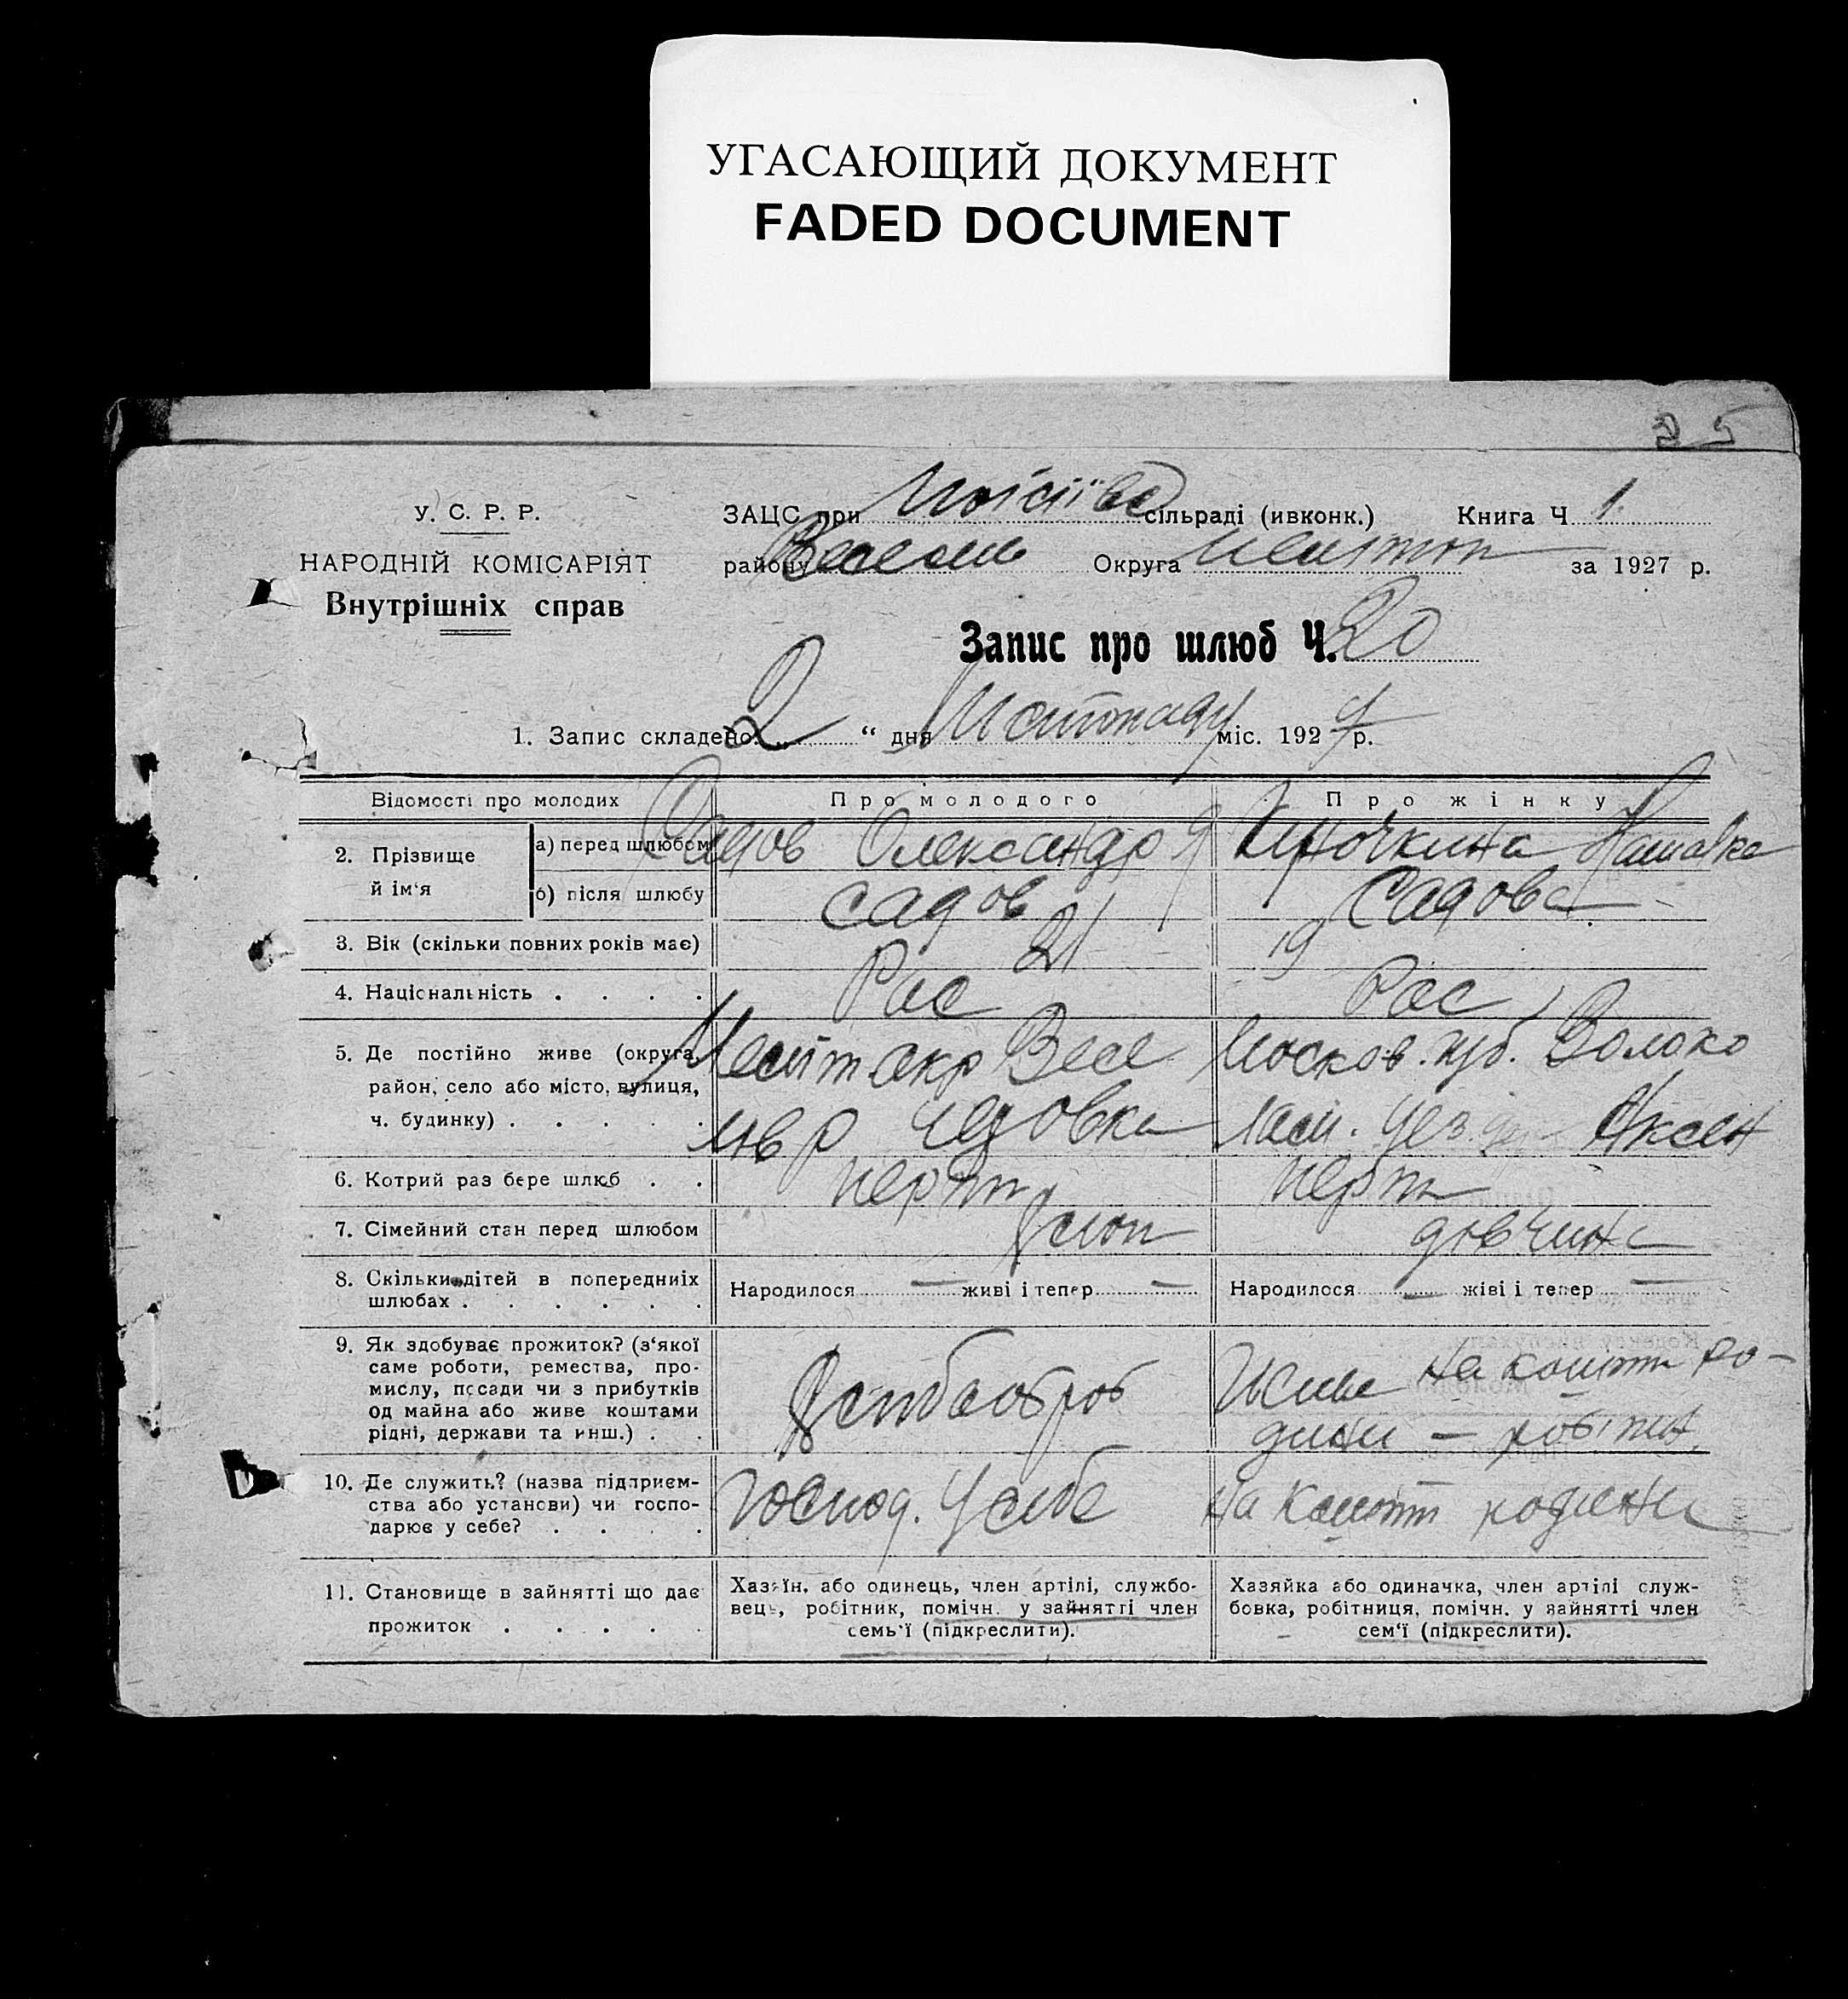 УГАСАЮЩИЙ ДОКУМЕНТ
FADED DOCUMENT
У. С. Р. Р.
НАРОДНІЙ КОМІСАРІЯТ
Внутрішніх справ
ЗАЦС при сільраді (ивконк.) Книга Ч 1.
району Округа за 1927 р.
Запис про шлюб Ч. 20
1. Запис складено „ 2 “ дня Листопаду міс. 1927 р.
Відомості про молодих Про молодого Про жінку
2. Прізвище й ім‘я
а) перед шлюбом Садов Олександр
б) після шлюбу Садов Садова
3. Вік (скільки повних років має) 21 19
4. Національність . . . . Рос Рос
5. Де постійно живе (округа, Весе Москов. губ. Волоко
район, село або місто, вулиця,
ч. будинку) . . . . . Аксен
6. Котрий раз бере шлюб . . перш перш
7. Сімейний стан перед шлюбом дівчина
8. Скільки дітей в попередниіх
шлюбах . . . . . .
Народилося — живі і тепер — Народилося — жіві і тепер —
9. Як здобуває прожиток? (з‘якої
саме роботи, ремества, про-
мислу, посади чи з прибутків
од майна або живе коштами
рідні, держави та инш.) . .
Живе на кошти ро-
дини — робітн.
10. Де служить? (назва підприєм-
ства або установи) чи госпо-
дарює у себе? . . . .
Господ. у себе на кошти родини
11. Становище в зайнятті що дає
прожиток . . . . .
Хазяїн. або одинець, член артілі, службо-
вець, робітник, помічн. у зайнятті член
семь‘ї (підкреслити).
Хазяйка або одиначка, член артілі служ-
бовка, робітниця, помічн. у зайнятті член
сем‘ї (підкреслити).